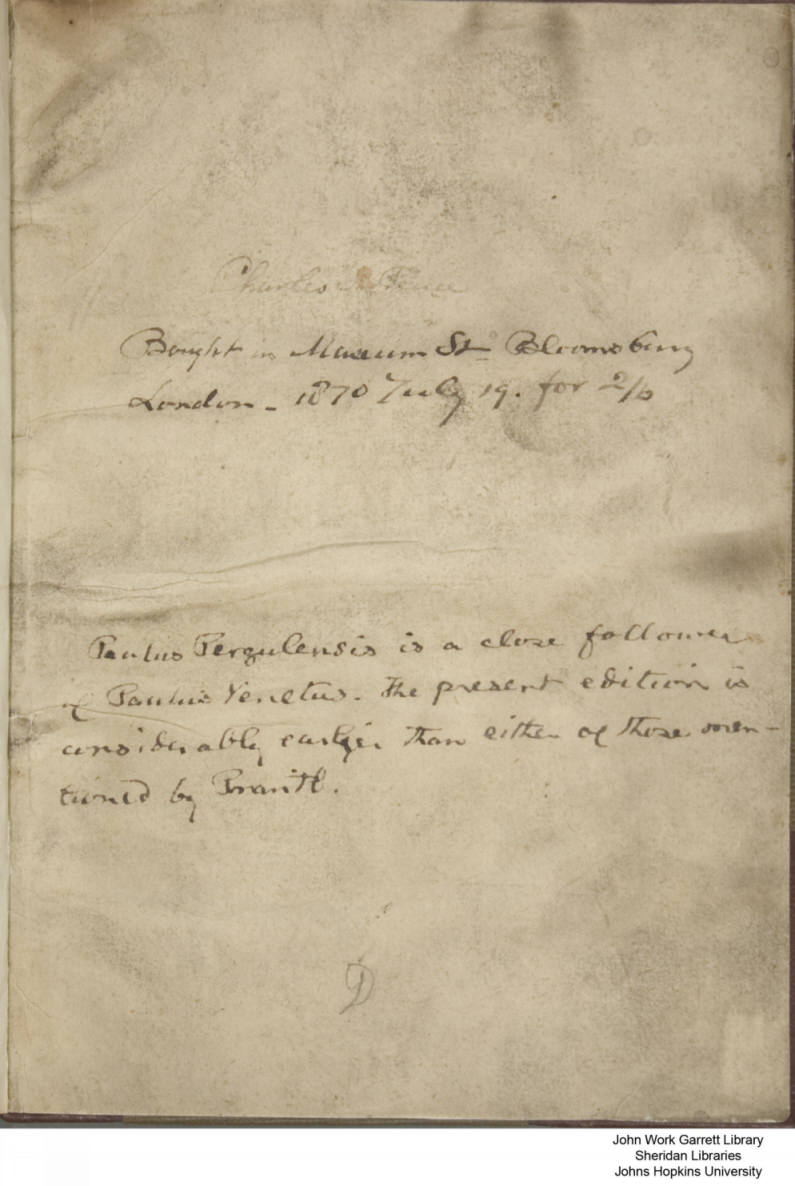 Charles S. Peirce
Bought in Museum St. Bloomsbury
London - 1870 July 19. for 2/6
Paulus Pergulensis is a close follower
of Paulus Venetus. The present edition is
considerably earlier than either of those men-
tioned by Prantl.
D
John Work Garrett Library
Sheridan Libraries
Johns Hopkins University